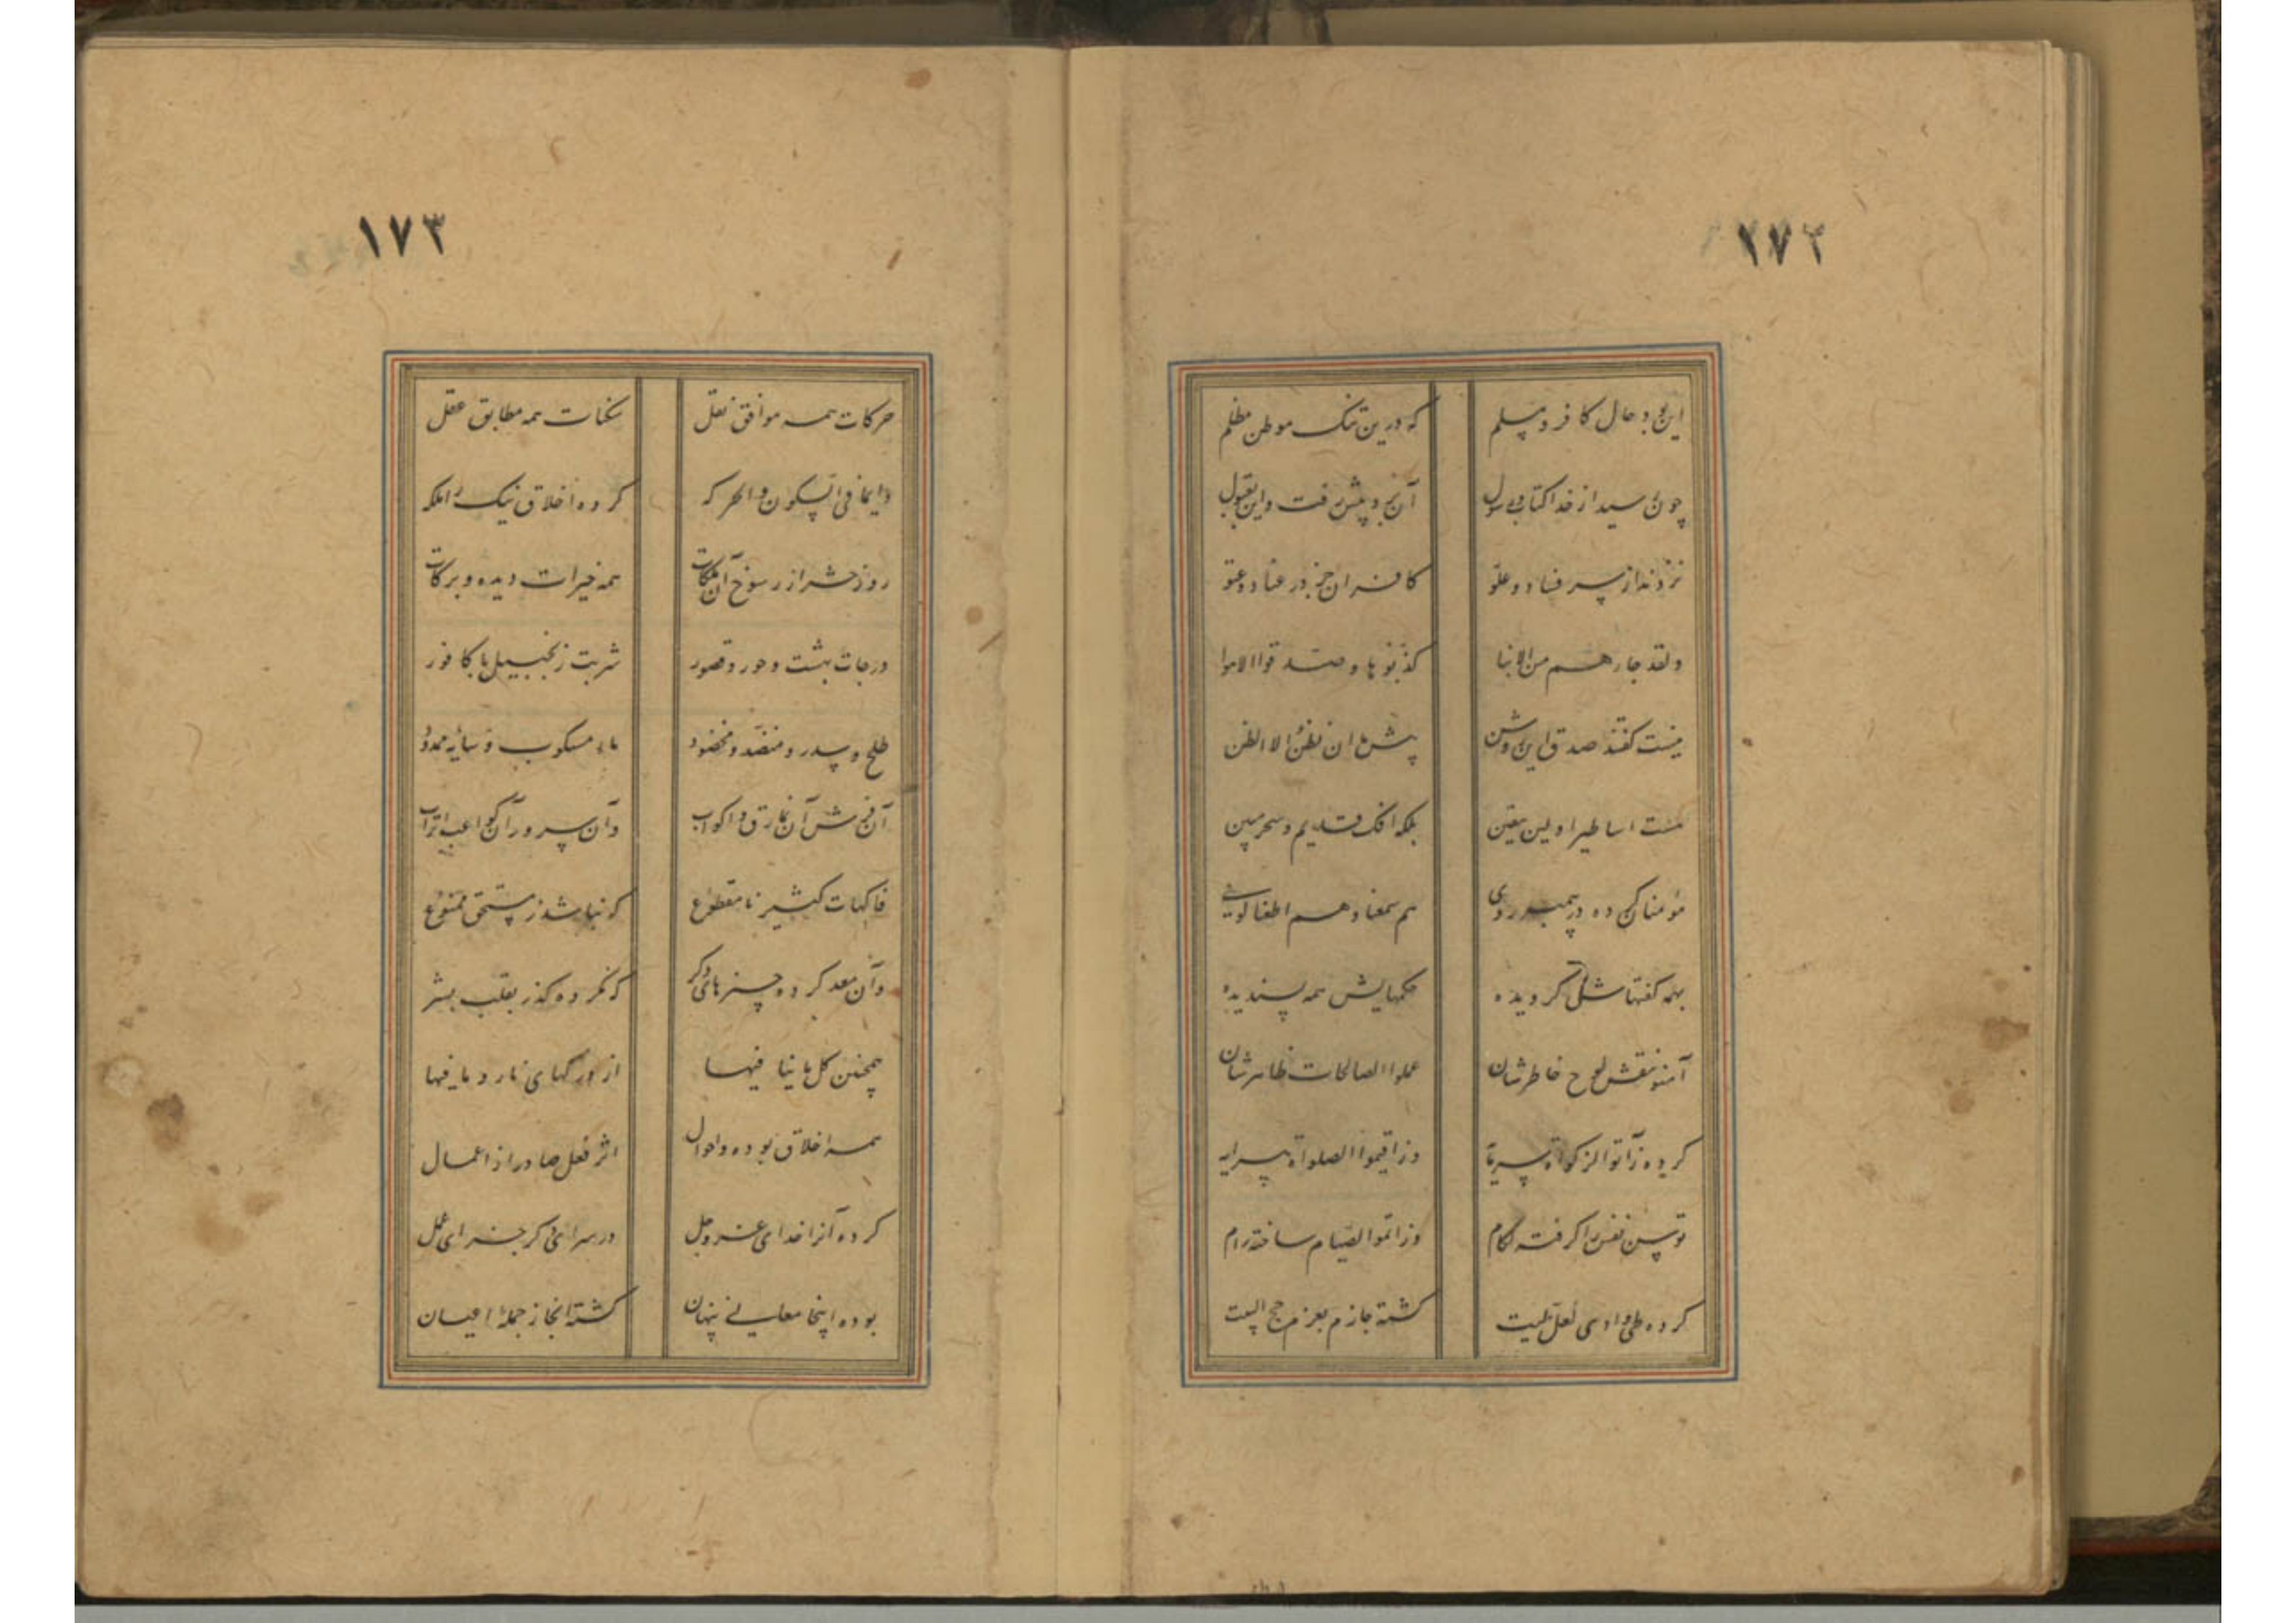 ١٧٢
این بود حال کافر و مسلم
که درین تنک موطن مظلم
چون رسید از خدا کتاب و رسول
آن بجد پیش رفت و این بقبول
نزدند از سر فساد و علو
کافران جز در عناد و عتو
ولقد جاءهم من الانبا
کذبوها و صدقوا الاهوا
نیست کفتند صدق این روشن
پیش ما ان نظن الا الظن
هست اساطیر اولین بیقین
بلکه افک قدیم و سحر مبین
مؤمنان کرده در پیمبر روی
هم سمعنا و هم اطعنا کوی
بهمه کفتهاش کرویده
حکمهایش همه پسندیده
آمنوا نقش لوح خاطرشان
عملوا الصالحات ظاهرشان
کرده ز آتوا الزکواة
وز اقیموا الصلواة
توسن نفس را کرفته لکام
وز اتموا الصیام ساخته رام
کرده طی وادی لعل ولیت
کشته جازم بعزم حج البیت
١٧٣
حرکات همه موافق نقل
سکنات همه مطابق عقل
دایما فی السکون والحرکه
کرده اخلاق نیک را ملکه
روز حشر از رسوخ آن ملکات
همه خیرات دیده و برکات
درجات بهشت و حور و قصور
شربت زنجبیل با کافور
طلح و سدر و منضد و مخضود
ماء مسکوب و سایه ممدود
آن فرش آن نمارق و اکواب
وآن سرر وآن کواعب اتراب
فاکهات کثیر نامقطوع
که نباشد ز مستحق ممنوع
وآن معد کرده چیزهای دکر
که نکرده کذر بقلب بشر
همچنین کل ما ینافیها
از درکهای نار و ما فیها
همه اخلاق بوده و احوال
اثر فعل صادر از اعمال
کرده آنرا خدای عز و جل
در سرای دکر جزای عمل
بوده اینجا معانی پنهان
کشته آنجا ز جملهٔ اعیان